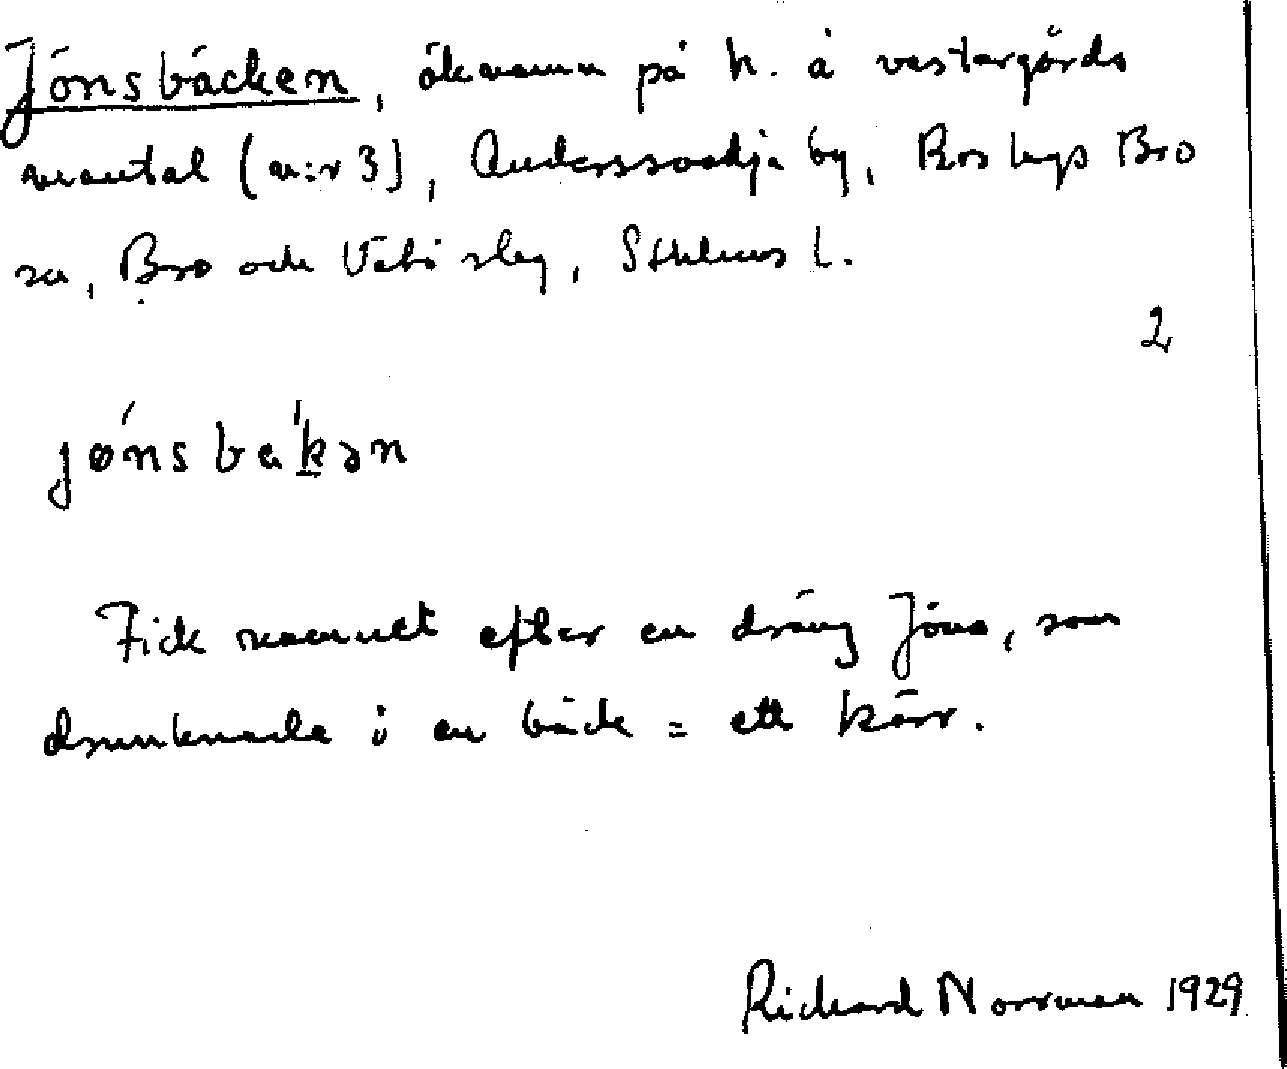 Jönsbäcken, åkernamn på h. å västergårds
mantal (n:r 3), Anderssvedja by, Roslags Bro
sn, Bro och Vätö slg, Sthlms l.
2
jǿnsbäkən
Fick namnet efter en dräng Jöns, som
drunknade i en bäck = ett kärr.
Richard Norrman 1929